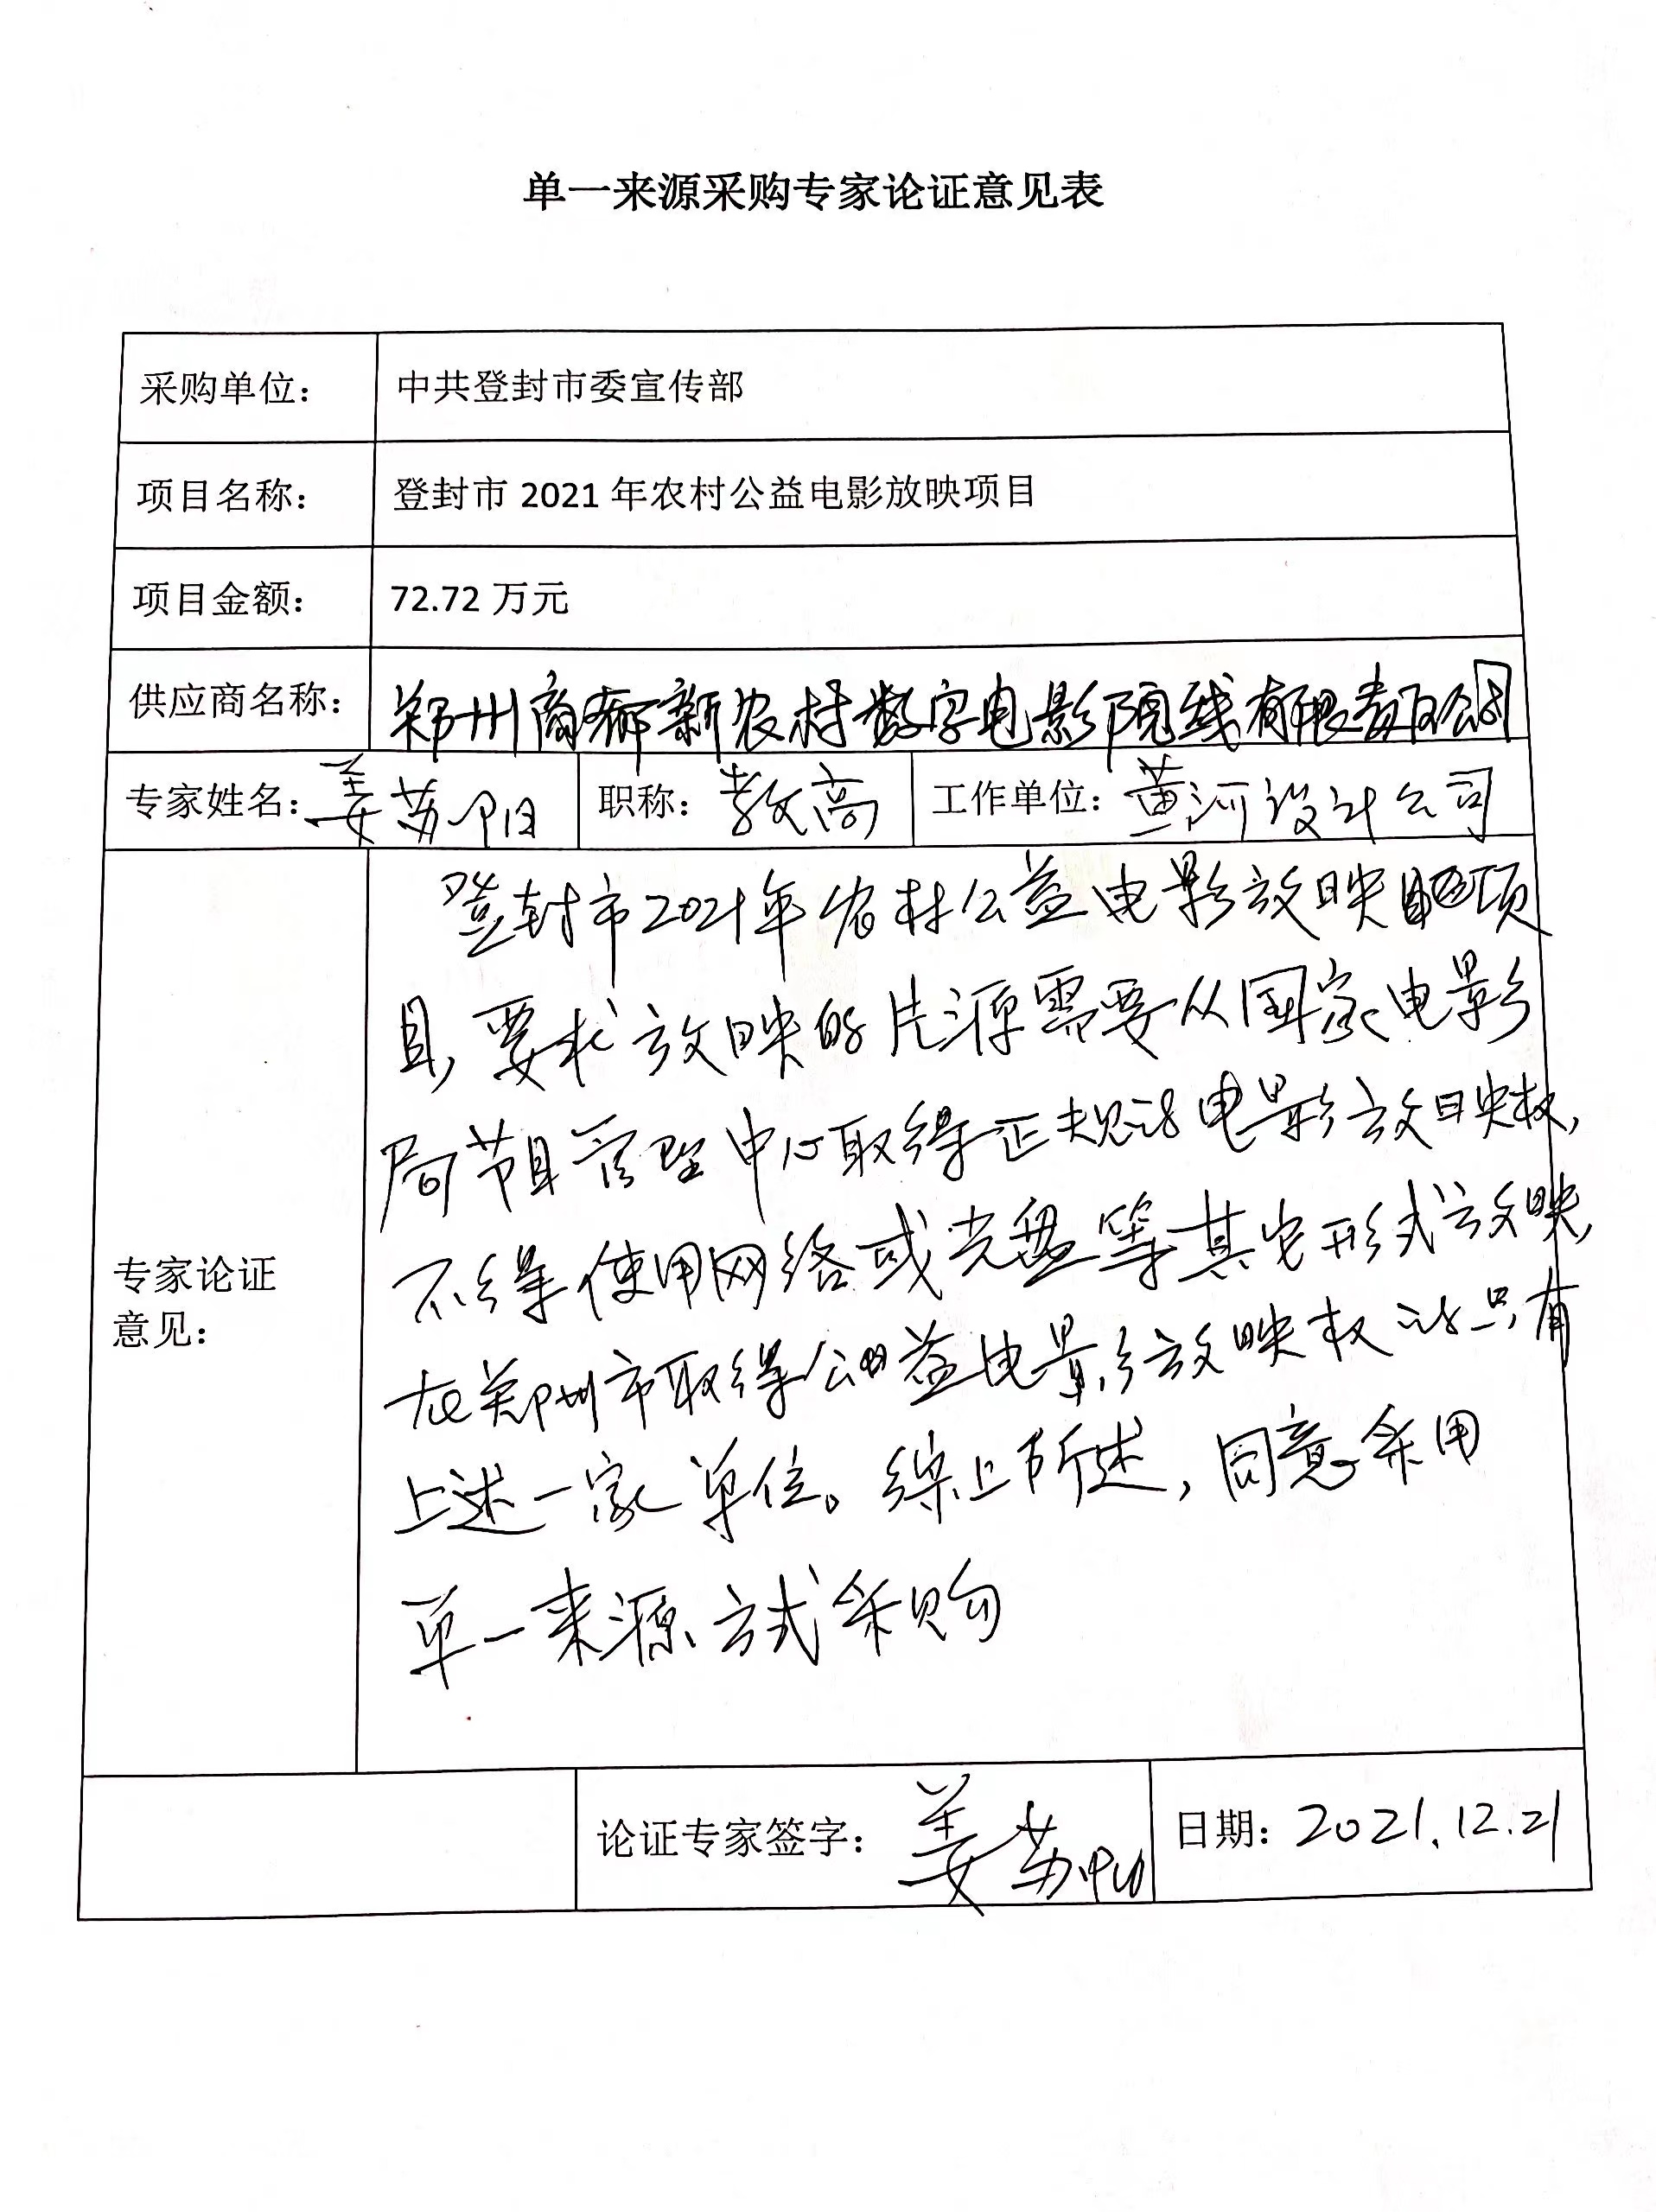 单一来源采购专家论证意见表
采购单位： 中共登封市委宣传部
项目名称： 登封市 2021 年农村公益电影放映项目
项目金额： 72.72 万元
供应商名称： 郑州商都新农村数字电影院线有限责任公司
专家姓名： 姜苏阳 职称： 教高 工作单位： 黄河设计公司
登封市2021年农村公益电影放映项
目，要求放映的片源需要从国家电影
局节目管理中心取得正规的电影放映权，
不得使用网络或光盘等其它形式放映，
在郑州市取得公益电影放映权的只有
专家论证
意见：
上述一家单位。综上所述，同意采用
单一来源方式采购
论证专家签字： 姜苏阳 日期： 2021.12.21